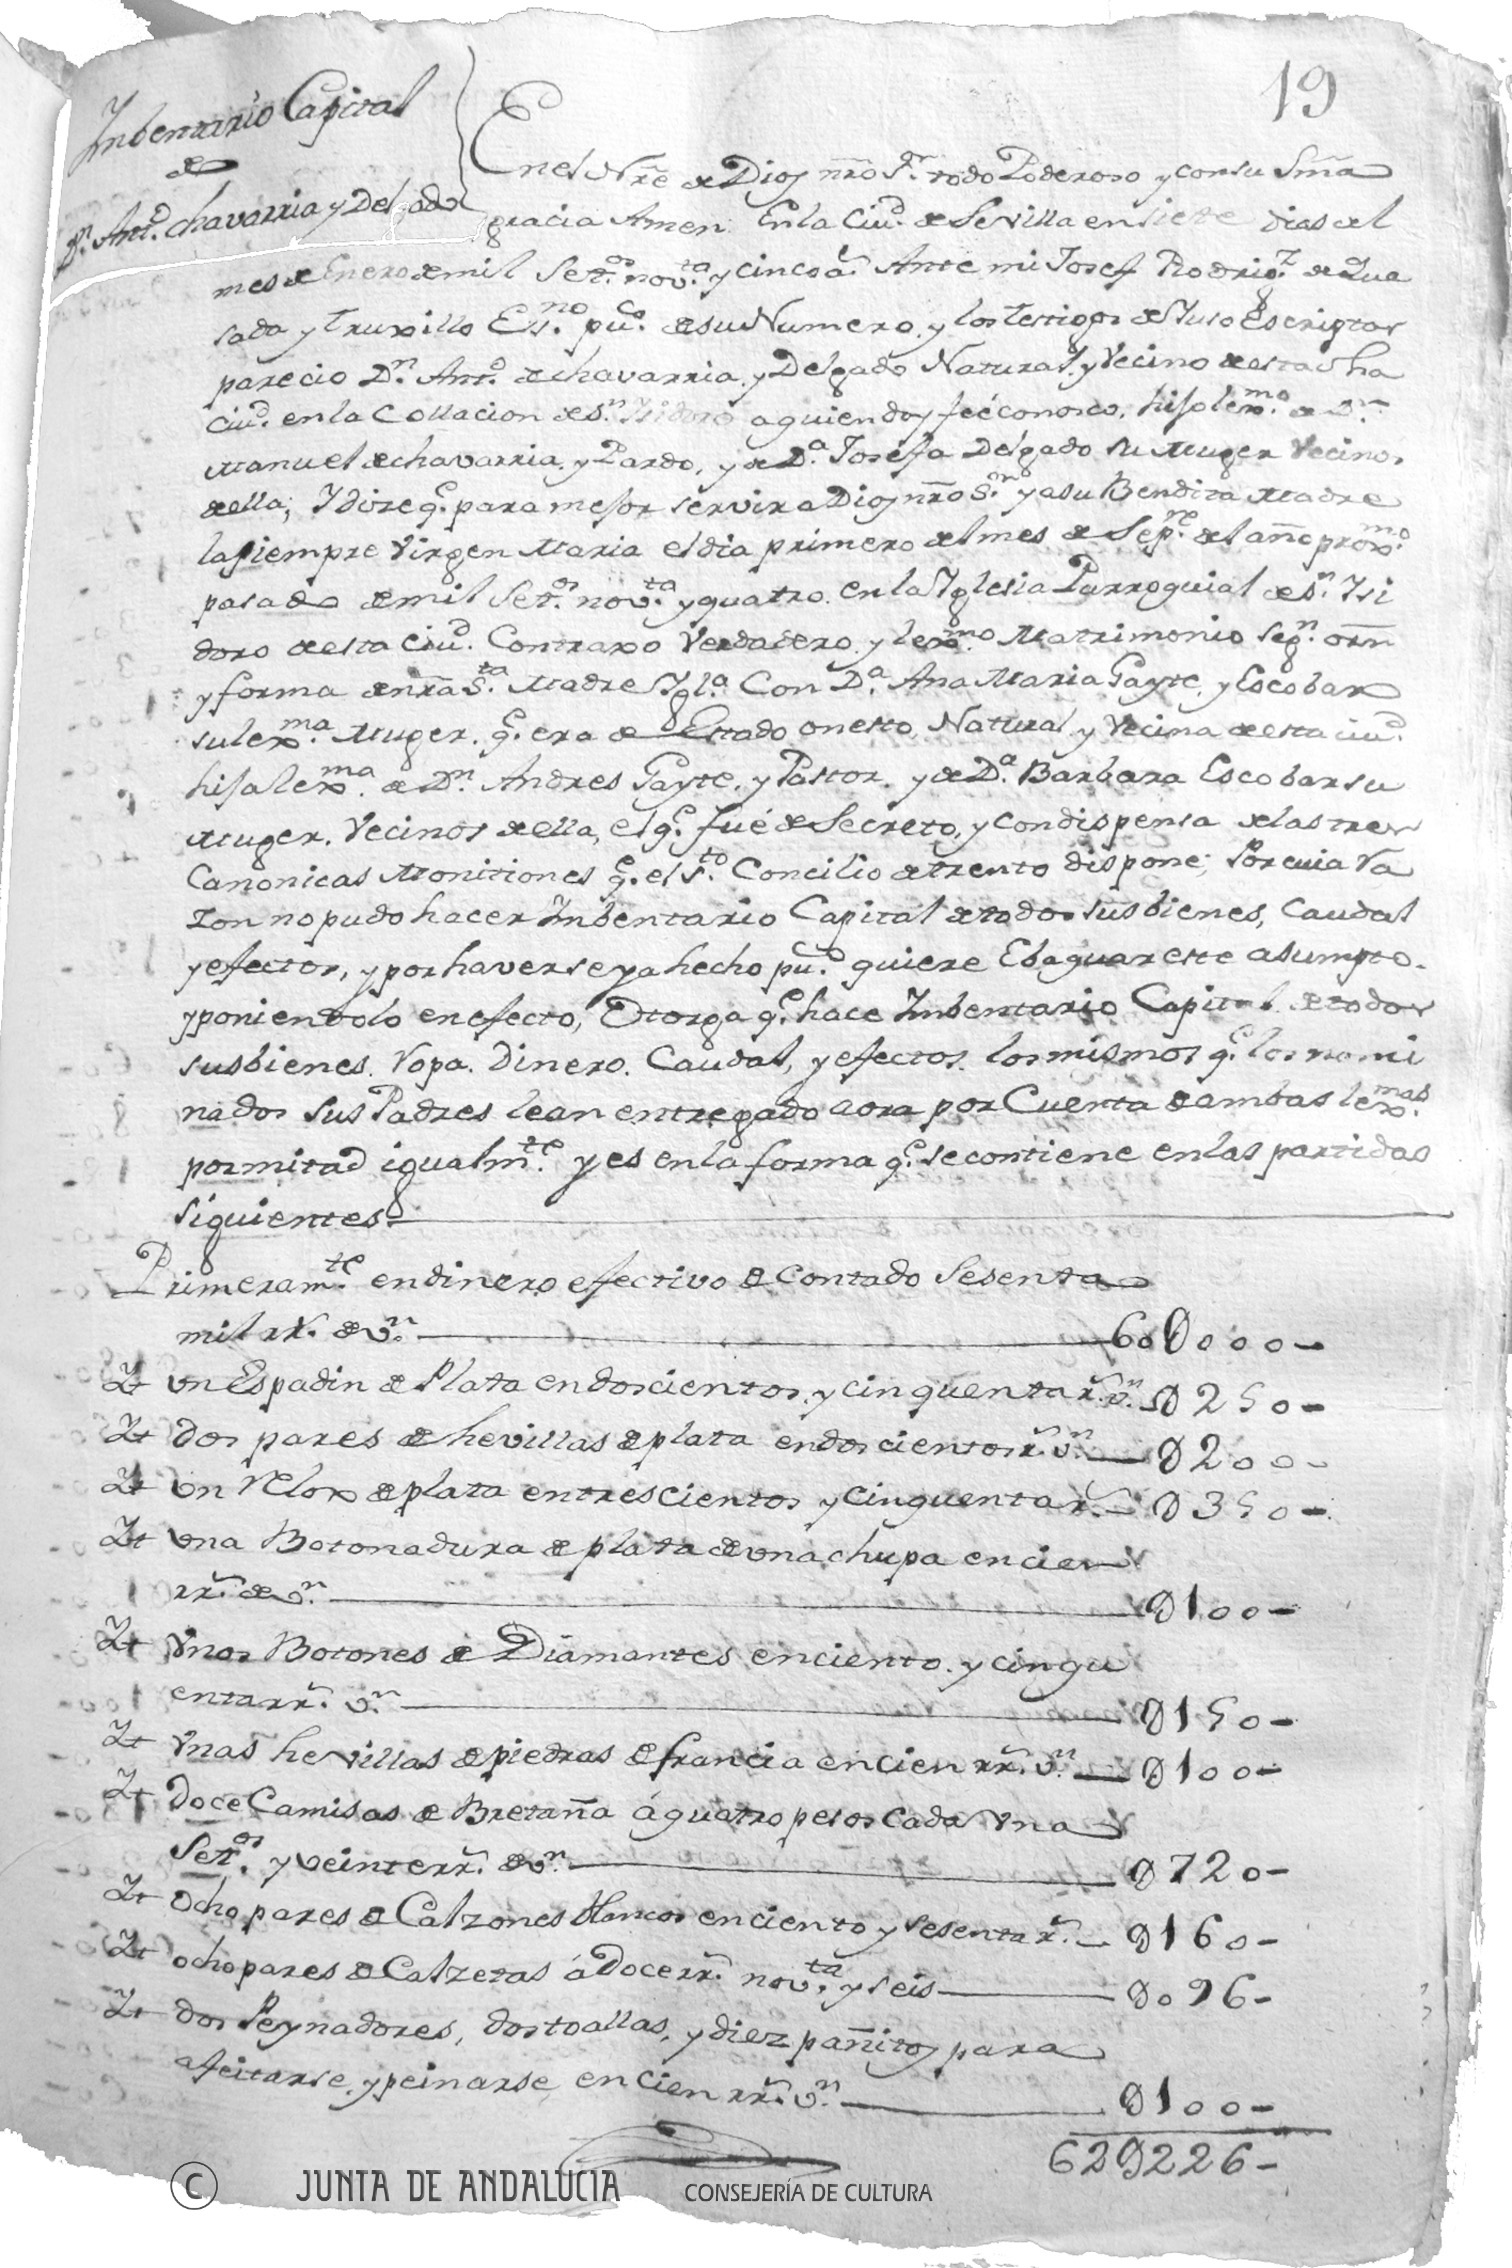 19
Inbentario Capital
de
Dn. Antº. Chavarria y Delgado
En el Nre de Dios nro Sr. todo Poderoso y con su Sma
gracia Amen. En la Ciud. de Sevilla en siete dias del
mes de Enero de mil Setos. novta. y cinco as. Ante mi Josef Rodrigz. de Que
sada y Truxillo Esno. puco. de su Numero, y los testigos de Yuso Escriptos
parecio Dn. Antº. de chavarria, y Delgado Natural, y Vecino de esta dha
Ciud. en la Collacion de Sn. Isidoro a quien doy feé conosco, hijo lexmo. de Dn.
Manuel de chavarria, y Pardo, y de Da. Josefa Delgado su Muger Vecinos
de ella; Y dixe qe. para mejor servir a Dios nro Sor. y a su Bendita Madre
la siempre Virgen Maria el dia primero del mes de Sepne. del año proxmo.
pasado de mil Setos. novta. y quatro. en la Yglesia Parroquial de Sn. Isi
doro de esta Ciud. Contraxo Verdadero, y lexmo. Matrimonio Segn. orn
y forma de nra Sta. Madre Ygla. Con Da. Ana Maria Gayte, y Escobar
su lexma. Muger, qe. era de Estado onesto, Natural, y Vecina de esta ciud.
hija lexma. de Dn. Andres Gayte, y Pastor, y de Da. Barbara Escobar su
Muger, Vecinos de ella, el qe. fué de Secreto, y con dispensa de las tres
Canonicas Monitiones qe. el Sto. Concilio de trento dispone; Por cuia Ra
zon no pudo hacer Inbentario Capital de todos sus bienes, Caudal
y efectos, y por haverse ya hecho puco. quiere Ebaquar este asumpto.
y poniendolo en efecto, Otorga qe. hace Inbentario Capital de todos
sus bienes, Ropa, Dinero, Caudal, y efectos, los mismos qe. los nomi
nados sus Padres le an entregado aora por Cuenta de ambas lexmas.
por mitad igualmte. y es en la forma qe. se contiene en las partidas
siguientes
Primeramte. en dinero efectivo de contado Sesenta
mil rs. de vn. 60D000
Yt un Espadin de Plata en doscientos, y cinquenta rs. vn. D250
Yt dos pares de hevillas de plata en doscientos rs. vn. D200
Yt un Relox de plata en trescientos y cinquenta rs. D350
Yt una Botonadura de plata de una chupa en cien
rrs. de vn. D100
Yt Unos Botones de Diamantes en ciento, y cinqu
enta rrs. vn. D150
Yt Unas hevillas de piedras de francia en cien rrs. vn. D100
Yt Doce Camisas de Bretaña á quatro pesos cada Una
Setos. y veinte rrs. de vn. D720
Yt Ocho pares de Calzones blancos en ciento y sesenta rs. D160
Yt ocho pares de Calzetas á Doce rrs. novta. y seis D096
Yt dos Peynadores, dos toallas, y diez pañitos para
afeitarse, y peinarse, en cien rrs. vn. D100
62D226
© JUNTA DE ANDALUCIA CONSEJERÍA DE CULTURA